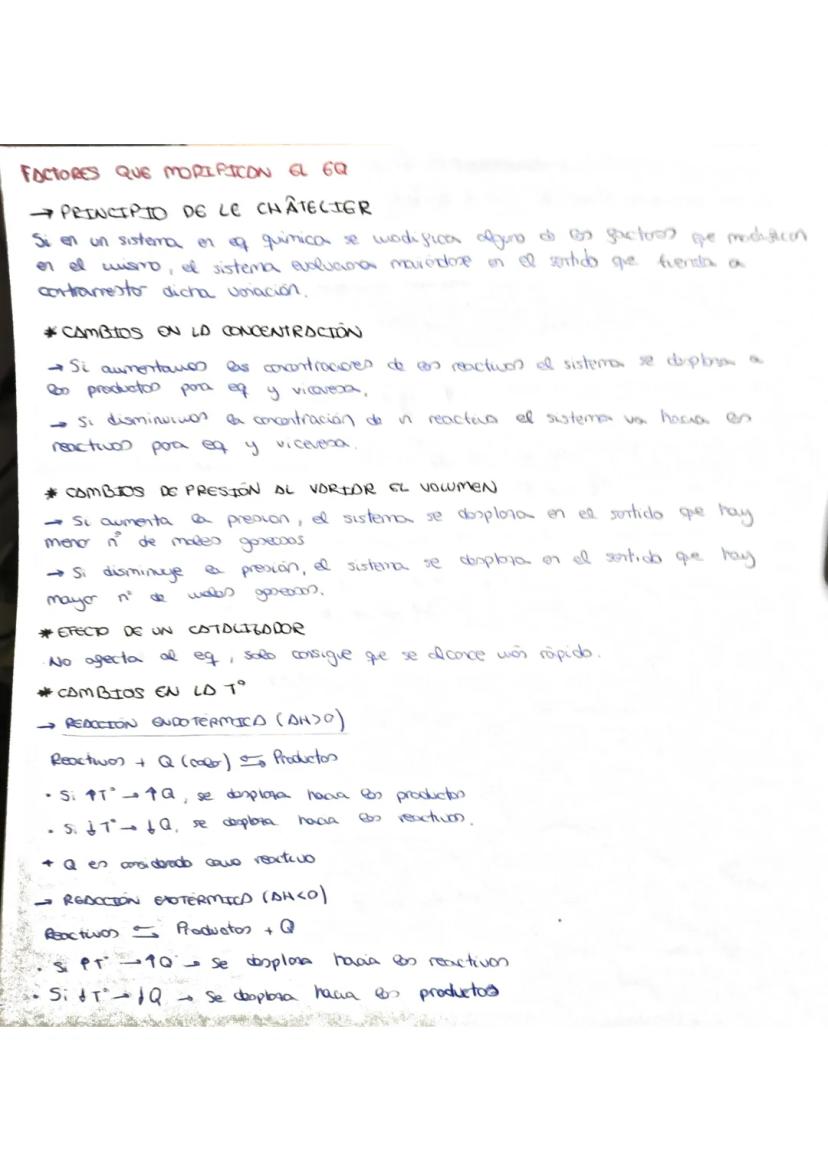 FACTORES QUE MODIFICAN EL EQ
→ PRINCIPIO DE LE CHÂTELIER
Si en un sistema en eq química se modifica alguno de los factores que modifican
en el mismo, el sistema evoluciona moviéndose en el sentido que tienda a
contrarrestar dicha variación.
* CAMBIOS EN LA CONCENTRACIÓN
→ Si aumentamos las concentraciones de los reactivos el sistema se desplaza a
los productos para eq y viceversa.
→ Si disminuimos la concentración de un reactivo el sistema va hacia los
reactivos para eq y viceversa.
* CAMBIOS DE PRESIÓN AL VARIAR EL VOLUMEN
→ Si aumenta la presion, el sistema se desplaza en el sentido que hay
menor nº de moles gaseosos
→ Si disminuye la presión, el sistema se desplaza en el sentido que hay
mayor nº de moles gaseosos.
* EFECTO DE UN CATALIZADOR
No afecta al eq, solo consigue que se alcance más rápido.
* CAMBIOS EN LA Tº
→ REACCIÓN ENDOTERMICA (ΔH>0)
Reactivos + Q (calor) ⇆ Productos
· Si ↑Tº → ↑Q, se desplaza hacia los productos
· Si ↓Tº → ↓Q, se desplaza hacia los reactivos.
* Q es considerado como reactivo
→ REACCIÓN EXOTÉRMICA (ΔH<0)
Reactivos ⇆ Productos + Q
· Si ↑Tº → ↑Q → Se desplaza hacia los reactivos
· Si ↓Tº → ↓Q → Se desplaza hacia los productos